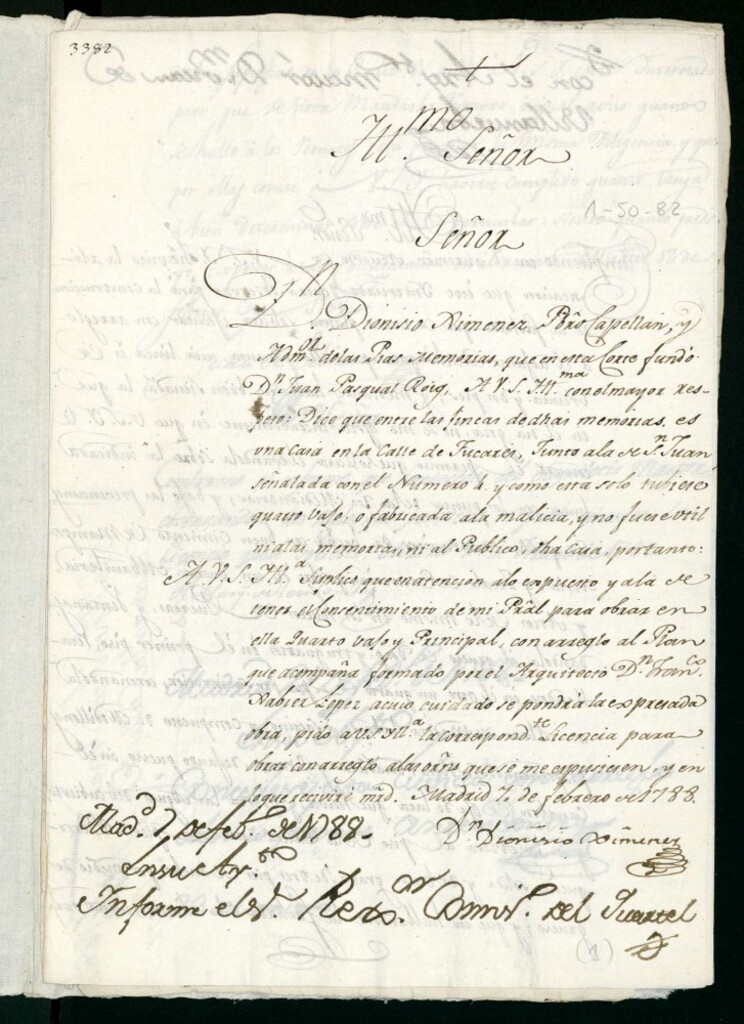 3382
+
Yll.mo Señor
1-50-82
Señor
Dn Dionisio Ximenez Pbro Capellan, y
Adm.or delas Pias Memorias, que en esta Corte fundó
Dn Juan Pasqual Roig, A V.S. Yll.ma con el mayor res-
peto: Dice que entre las fincas de dhas memorias, es
una Casa en la Calle de Fucares, Junto ala de Sn Juan
señalada con el Numero 6. y como esta solo tubiese
quarto vajo, ó fabricada ala malicia, y no fuese util
ni alas memorias, ni al Publico, dha Casa, por tanto:
A V.S. Yll.a Suplico que en atencion alo expuesto y ala de
tener el Concentimiento de mi Pral para obrar en
ella Quarto vajo y Principal, con arreglo al Plan
que acompaña formado por el Arquitecto Dn Fran.co
Xabier Lopez acuio cuidado se pondrá la expresada
obra, pido a VS Yll.a la correspond.te Licencia para
obrar con arreglo alas orns que se me expusiesen, y en
loque recivire mrd. Madrid 7 de febrero de 1788.
Dn Dionisio Ximenez
Mad.d 7 de feb.o de 1788.
Informe el S.r Rex.or Comis.o del Quartel
(1)